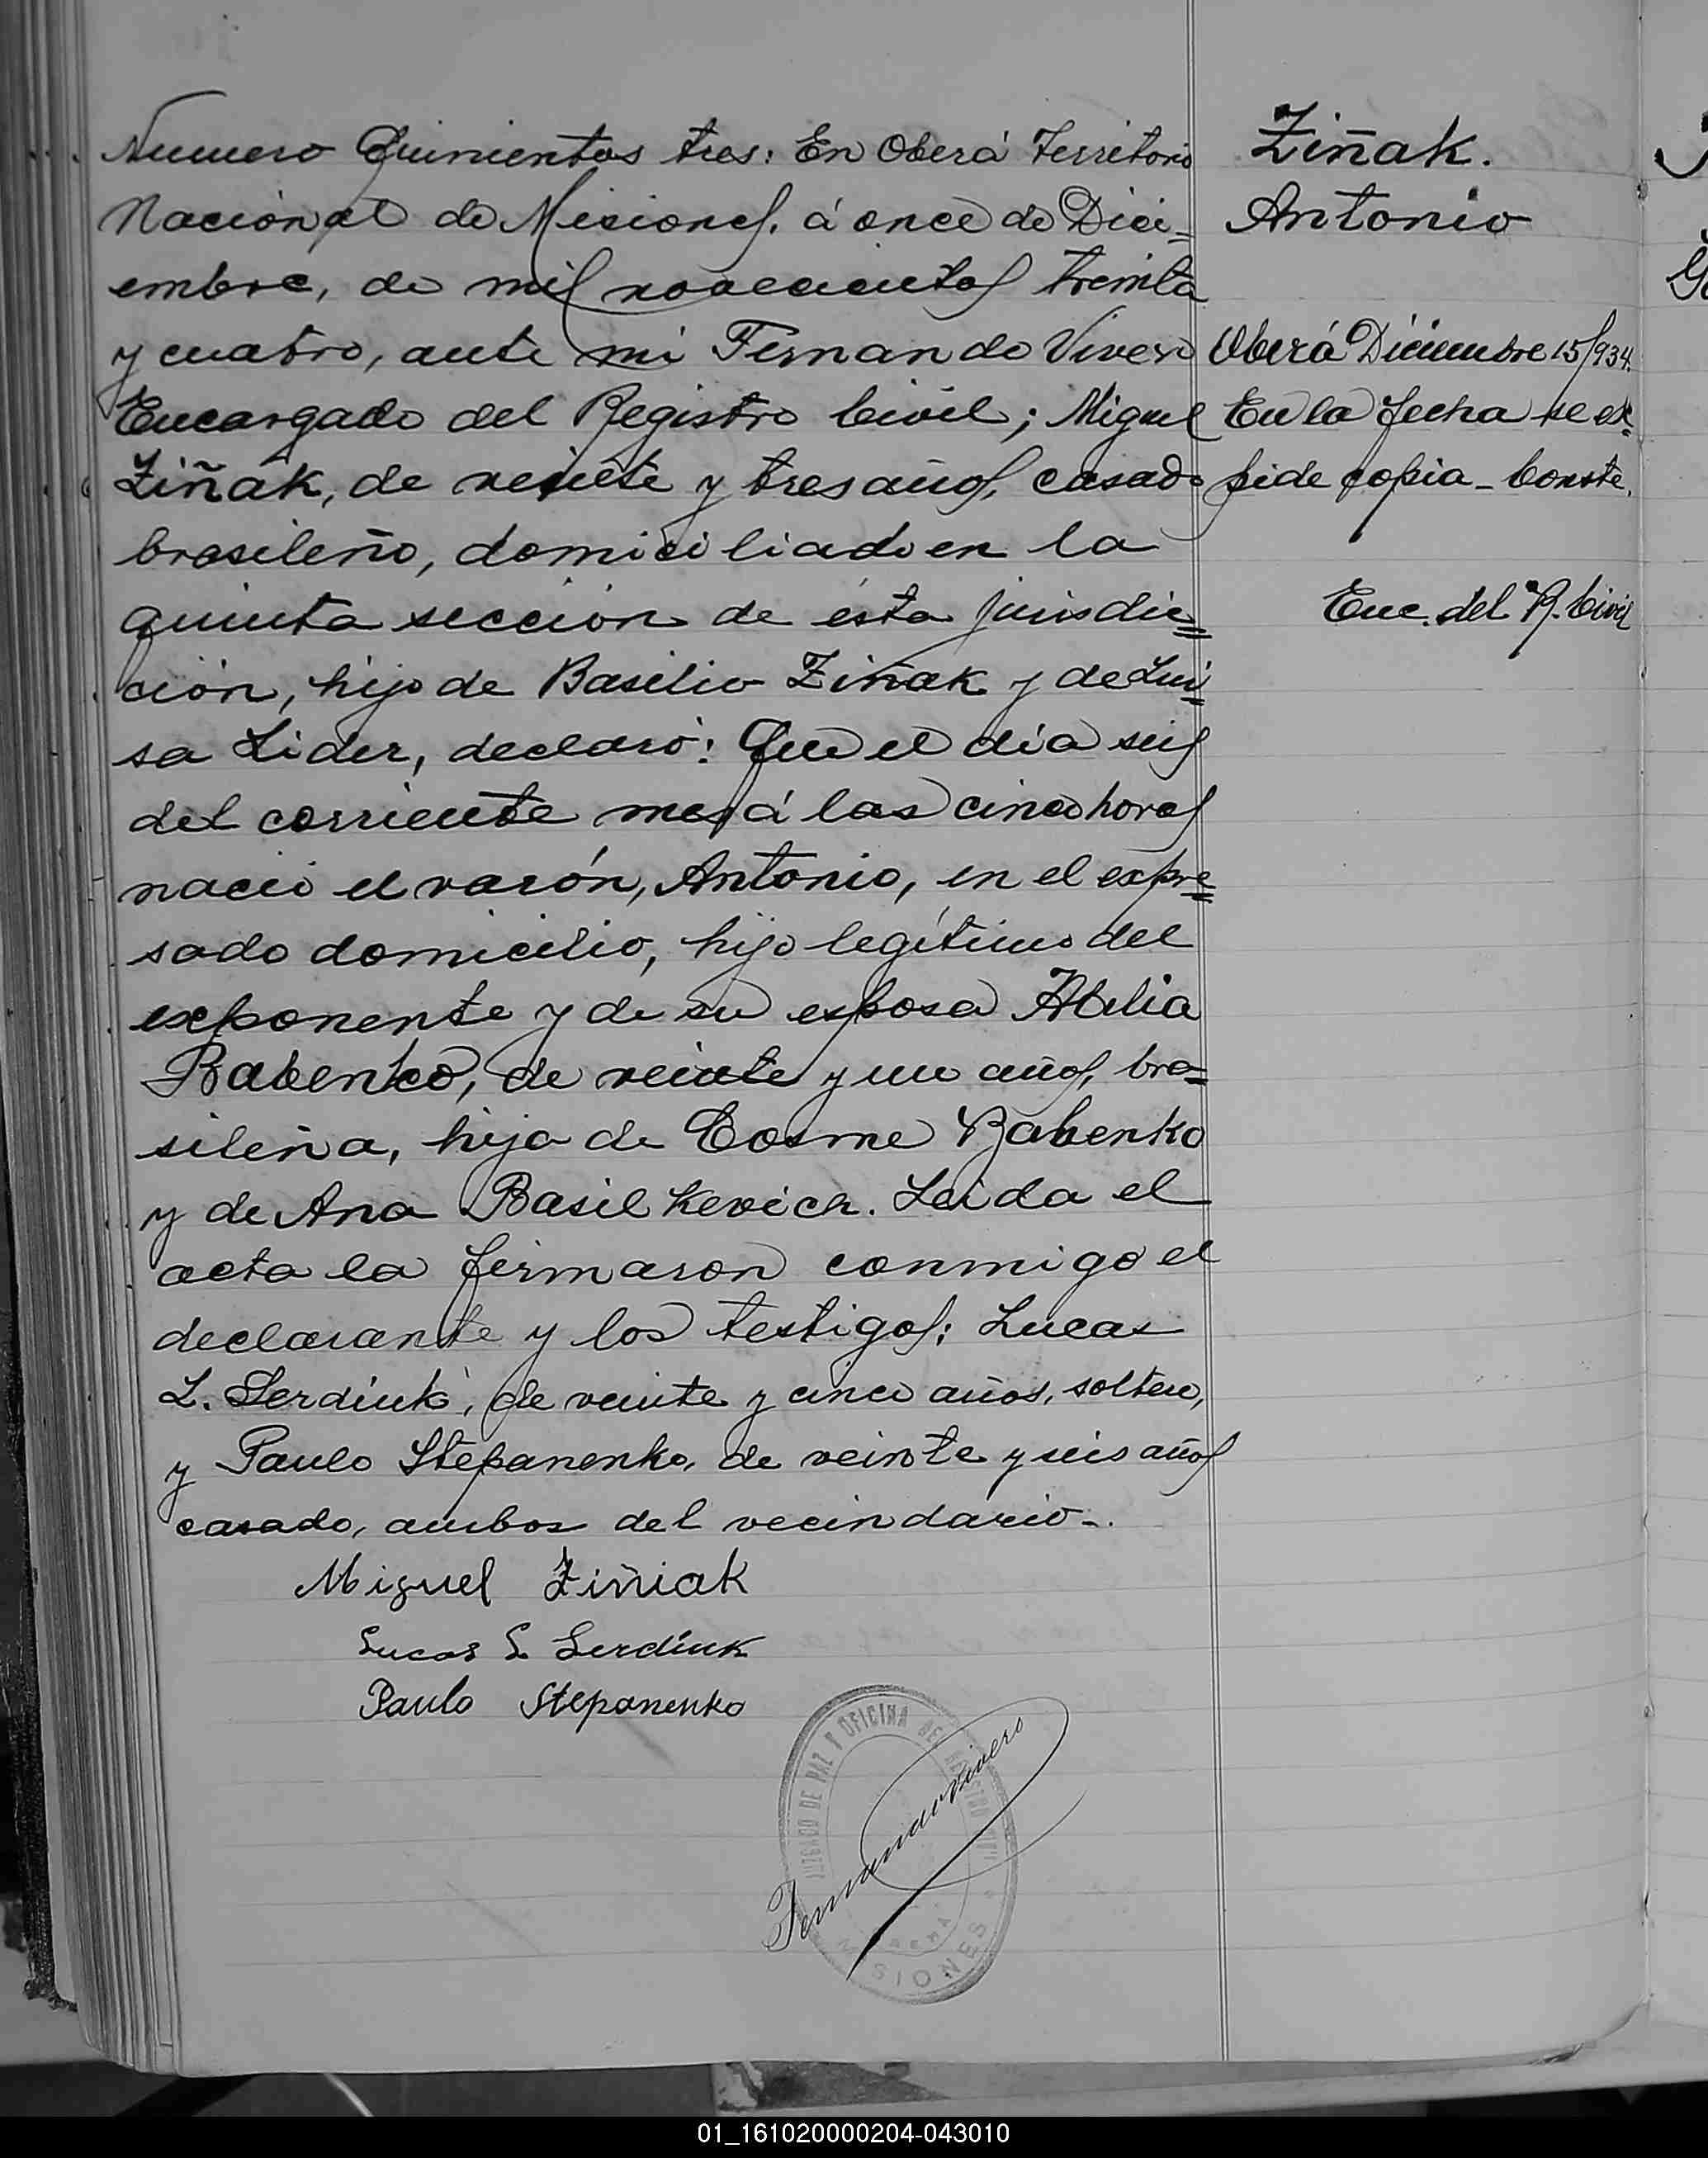 Numero Quinientos tres: En Oberá Territorio
Nacional de Misiones, á once de Dici=
embre, de mil novecientos treinta
y cuatro, ante mi Fernando Vivero
Encargado del Registro Civil; Miguel
Ziñak, de veinte y tres años, casado
brasileño, domiciliado en la
quinta sección de ésta jurisdic=
ción, hijo de Basilio Ziñak y de Lui=
sa Lider, declaró: Que el día seis
del corriente mes á las cinco horas
nació el varón, Antonio, en el expre=
sado domicilio, hijo legítimo del
exponente y de su esposa
Babenko, de veinte y un años, bra=
sileña, hija de Cosme Babenko
y de Ana Basilkevich. Leida el
acta la firmaron conmigo el
declarante y los testigos: Lucas
L. Serdiuk, de veinte y cinco años, soltero,
y Paulo Stepanenko, de veinte y seis años
casado, ambos del vecindario-.
Miguel Ziñiak
Lucas L. Serdiuk
Paulo Stepanenko
Fernando Vivero
JUZGADO DE PAZ Y OFICINA DEL REGISTRO CIVIL
OBERA
MISIONES
Ziñak.
Antonio
Oberá Diciembre 15/934.
En la fecha se ex=
pide copia - Conste.
Enc. del R. Civil
01_161020000204-043010